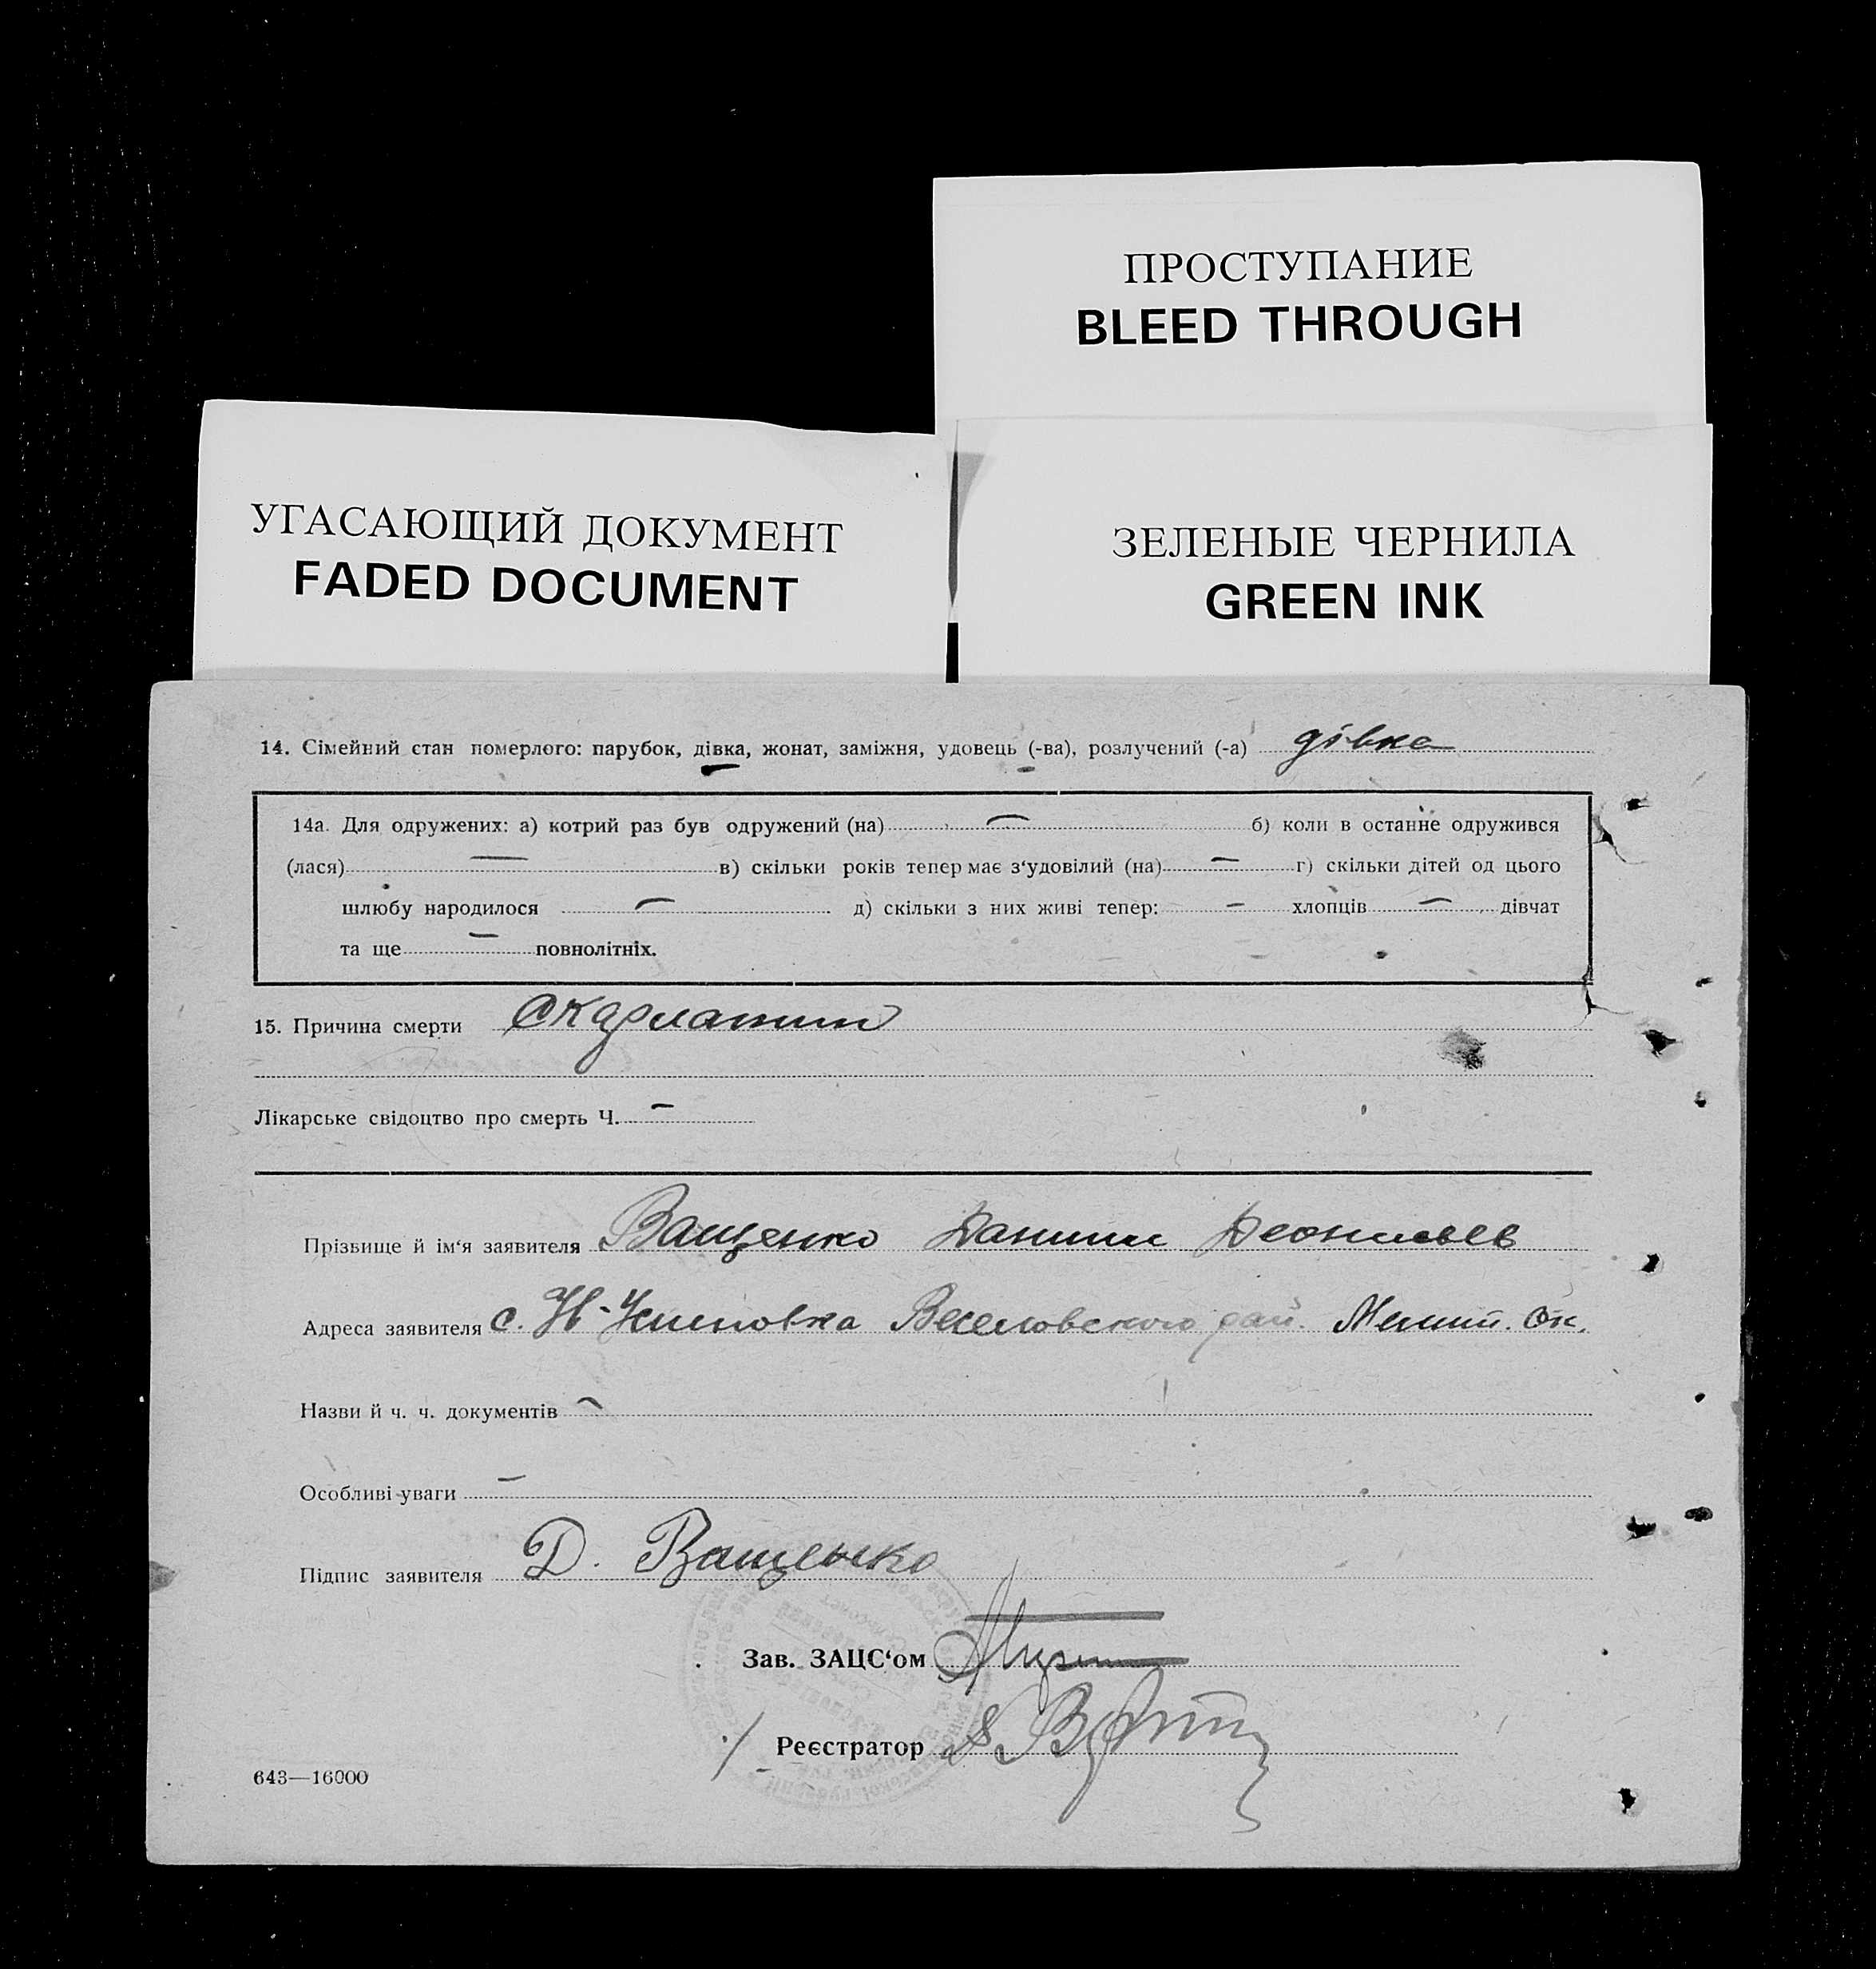 ПРОСТУПАНИЕ
BLEED THROUGH
УГАСАЮЩИЙ ДОКУМЕНТ
FADED DOCUMENT
ЗЕЛЕНЫЕ ЧЕРНИЛА
GREEN INK
14. Сімейний стан померлого: парубок, дівка, жонат, заміжня, удовець (-ва), розлучений (-а) дівка
14а. Для одружених: а) котрий раз був одружений (на) — б) коли в останнє одружився
(лася) — в) скільки років тепер має з‘удовілий (на) — г) скільки дітей од цього
шлюбу народилося — д) скільки з них живі тепер: — хлопців — дівчат
та ще — повнолітніх.
15. Причина смерти скарлатин
Лікарське свідоцтво про смерть Ч. —
Прізвище й ім‘я заявителя Ващенко Данило
Адреса заявителя с. Н-Успеновка Веселовского рай. Мелит. Ок.
Назви й ч. ч. документів —
Особливі уваги —
Підпис заявителя Д. Ващенко
Зав. ЗАЦС‘ом
Реєстратор
643—16000